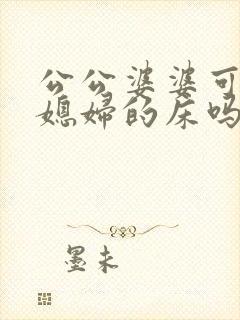 公公婆婆可
媳妇的床吗
墨未